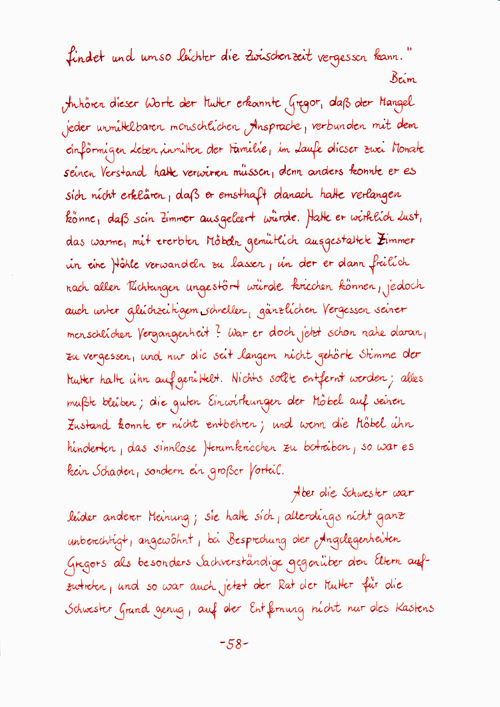 findet und umso leichter die Zwischenzeit vergessen kann."
Beim
Anhören dieser Worte der Mutter erkannte Gregor, daß der Mangel
jeder unmittelbaren menschlichen Ansprache, verbunden mit dem
einförmigen Leben, inmitten der Familie, im Laufe dieser zwei Monate
seinen Verstand hatte verwirren müssen, denn anders konnte er es
sich nicht erklären, daß er ernsthaft danach hatte verlangen
könne, daß sein Zimmer ausgeleert würde. Hatte er wirklich Lust,
das warme, mit ererbten Möbeln gemütlich ausgestattete Zimmer
in eine Höhle verwandeln zu lassen, in der er dann freilich
nach allen Richtungen ungestört würde kriechen können, jedoch
auch unter gleichzeitigem, schnellen, gänzlichen Vergessen seiner
menschlichen Vergangenheit? War er doch jetzt schon nahe daran,
zu vergessen, und nur die seit langem nicht gehörte Stimme der
Mutter hatte ihn aufgerüttelt. Nichts sollte entfernt werden; alles
mußte bleiben; die guten Einwirkungen der Möbel auf seinen
Zustand konnte er nicht entbehren; und wenn die Möbel ihn
hinderten, das sinnlose Herumkriechen zu betreiben, so war es
kein Schaden, sondern ein großer Vorteil.
Aber die Schwester war
leider anderer Meinung; sie hatte sich, allerdings nicht ganz
unberechtigt, angewöhnt, bei Besprechung der Angelegenheiten
Gregors als besonders Sachverständige gegenüber den Eltern auf-
zutreten, und so war auch jetzt der Rat der Mutter für die
Schwester Grund genug, auf der Entfernung nicht nur des Kastens
-58-